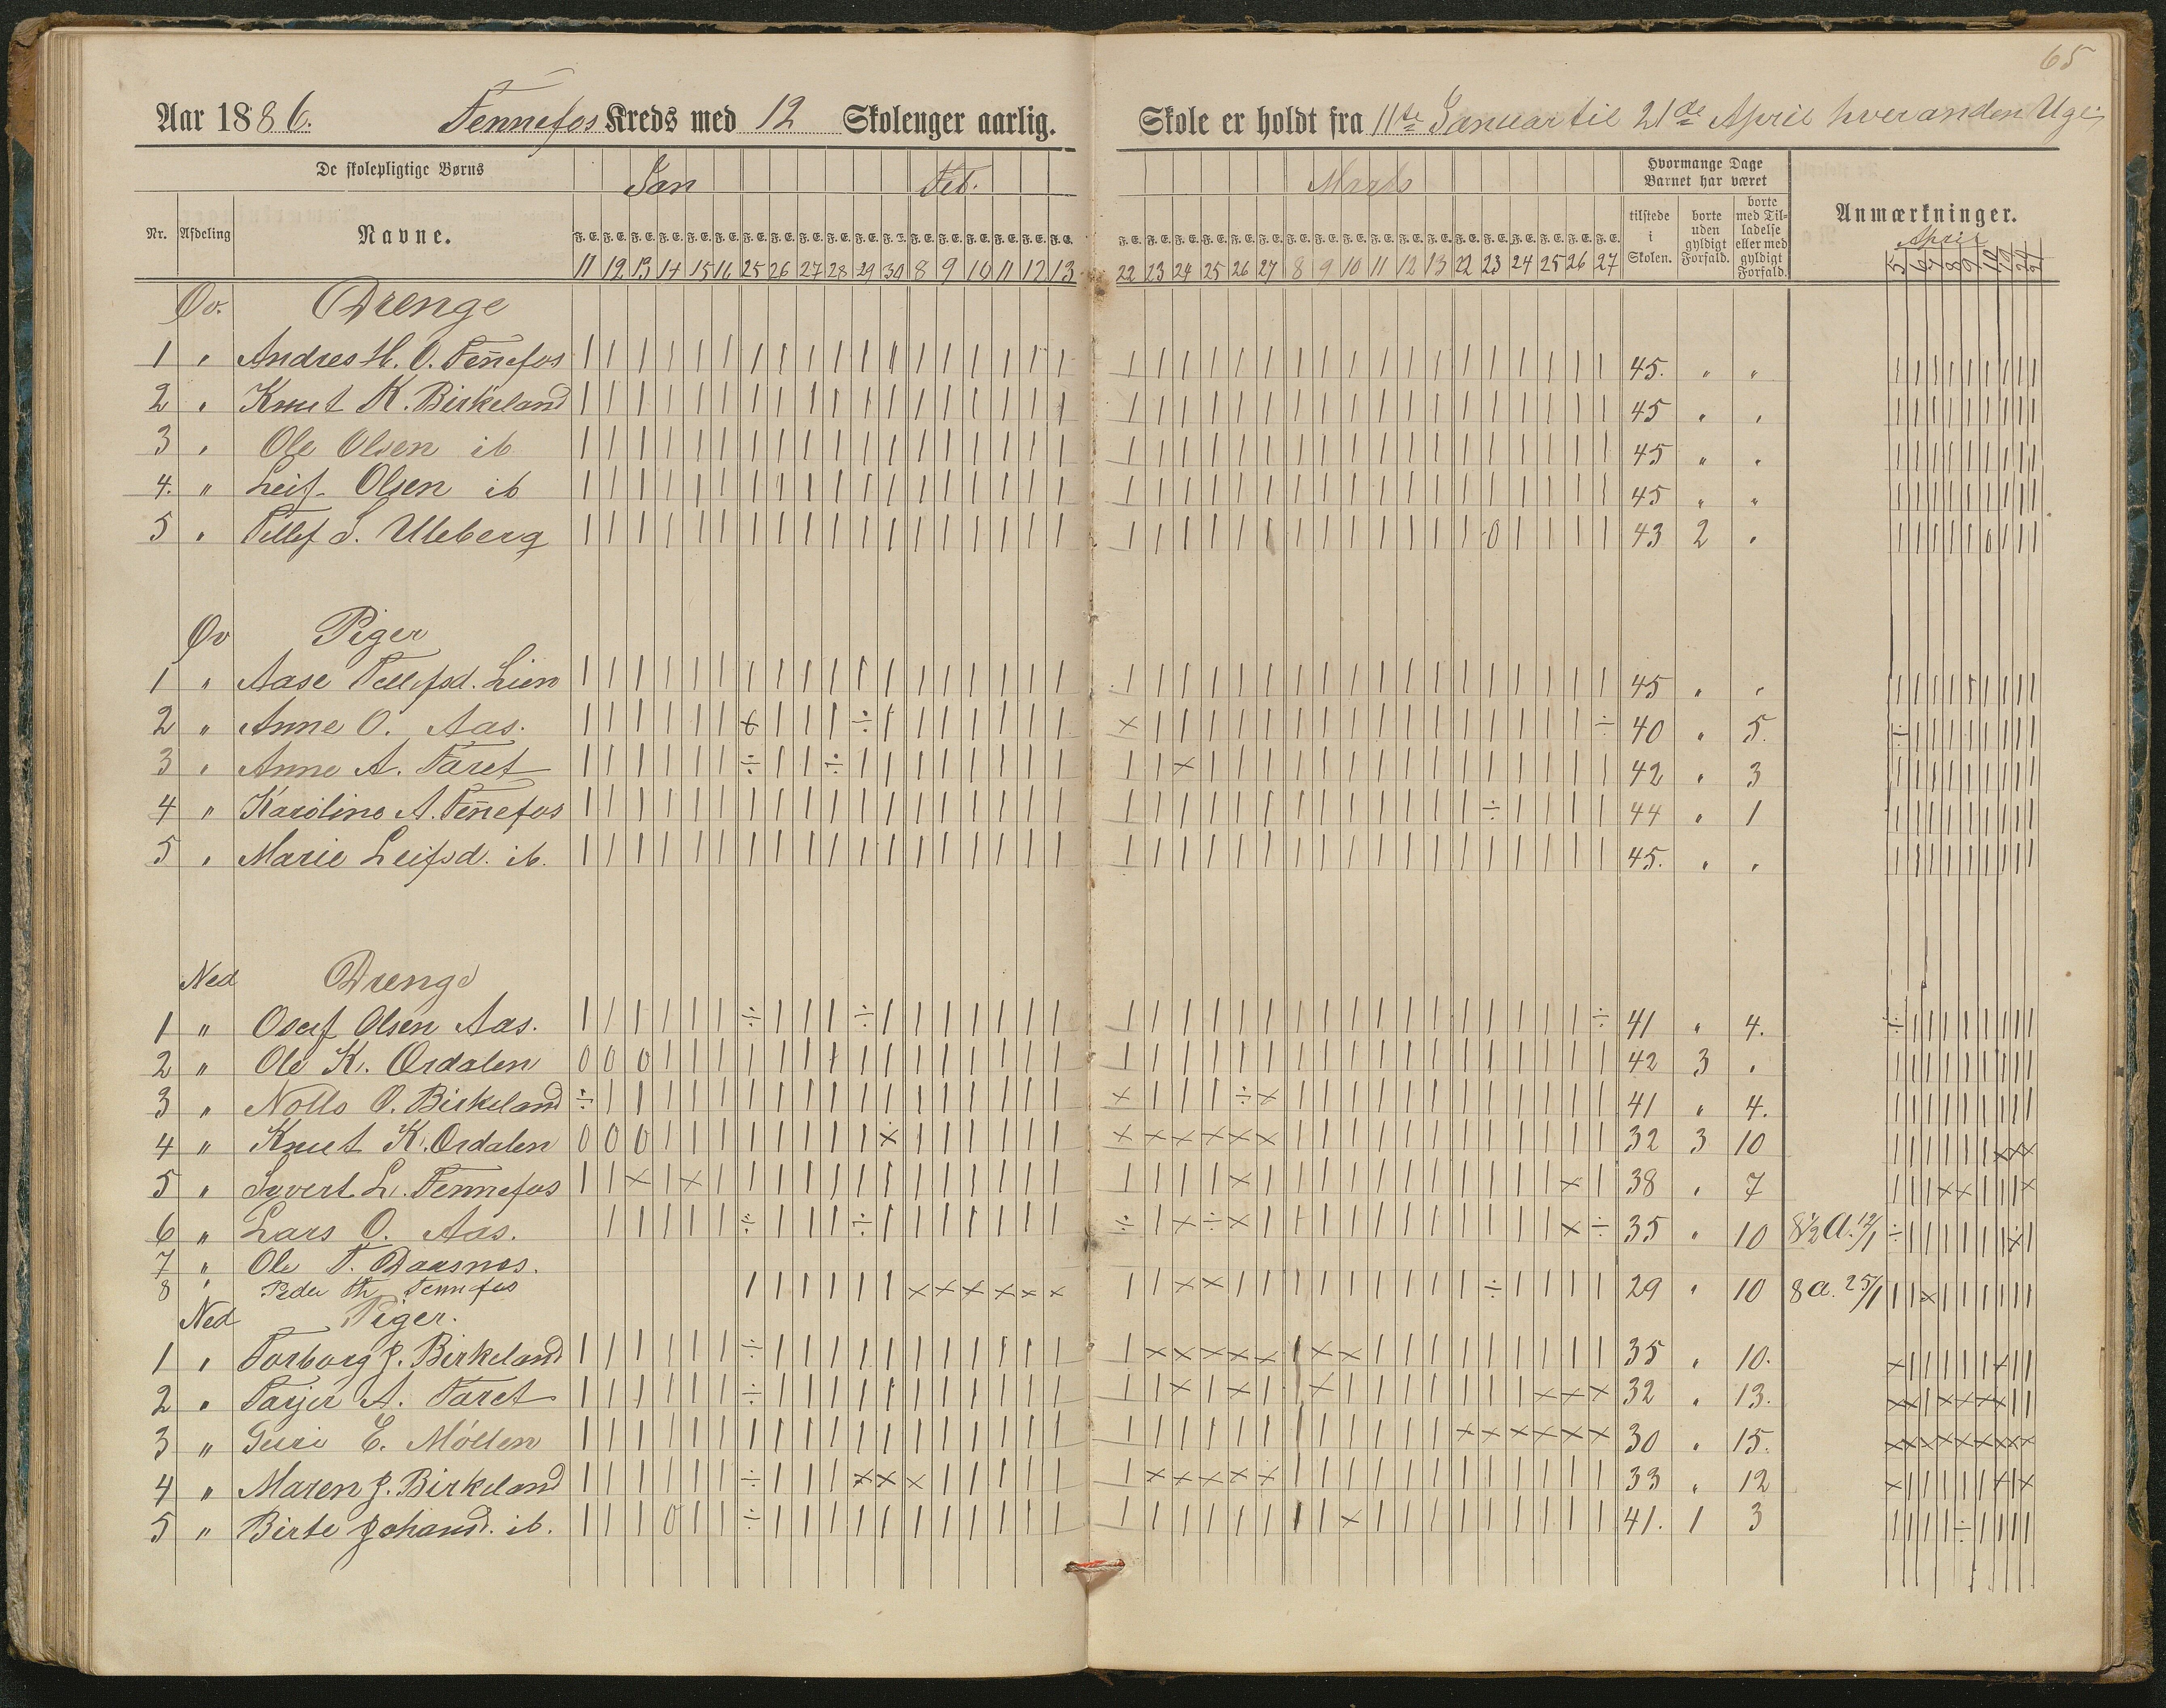 65
Aar 1886. Fennefos Kreds med 12 Skoleuger aarlig. Skole er holdt fra 11te Januar til 21de April hveranden Uge
De skolepligtige Børns
Nr. Afdeling Navne.
Jan Feb. Marts
F. E. F. E. F. E. F. E. F. E. F. E. F. E. F. E. F. E. F. E. F. E. F. E. F. E. F. E. F. E. F. E. F. E. F. E.
11 12 13 14 15 16 25 26 27 28 29 30 8 9 10 11 12 13 22 23 24 25 26 27 8 9 10 11 12 13 22 23 24 25 26 27
Hvormange Dage Barnet har været
tilstede i Skolen.
borte uden gyldigt Forfald.
borte med Tilladelse eller med gyldigt Forfald.
Anmærkninger.
April
Øv. Drenge
1 " Andres H. O. Fennefos 45. " "
2 " Knut K. Birkeland 45 " "
3 " Ole Olsen ib 45 " "
4. " Leif Olsen ib 45 " "
5 " Tellef S. Uleberg 43 2 "
Øv Piger
1 " Aase Tellefsd. Lien 45 " "
2 " Anne O. Aas. 40 " 5.
3 " Anne A. Faret 42 " 3
4 " Karoline A. Fennefos 44 " 1
5 " Marie Leifsd. ib. 45. " "
Ned Drenge
1 " Olsen Aas. 41 " 4.
2 " Ole K. Ørdalen 42 3 "
3 " O. Birkeland 41 " 4.
4 " Knut K. Ørdalen 32 3 10
5 " Syvert L. Fennefos 38 " 7
6 " Lars O. Aas. 35 " 10 8½ A. 12/1
7 " Ole T. Daasnes.
8 " Peder Th Fennefos 29 " 10 8 a. 25/1
Ned Piger.
1 " Torborg J. Birkeland 35 " 10.
2 " Tarjer A. Faret 32 " 13.
3 " Guri E. Møllen 30 " 15.
4 " Maren J. Birkeland 33 " 12
5 " Birte Johansd. ib. 41. 1 3